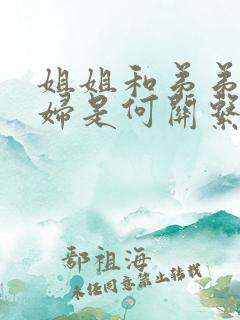 姐姐和弟弟
婦是何關繫
鄢祖海
未经同意禁止转载